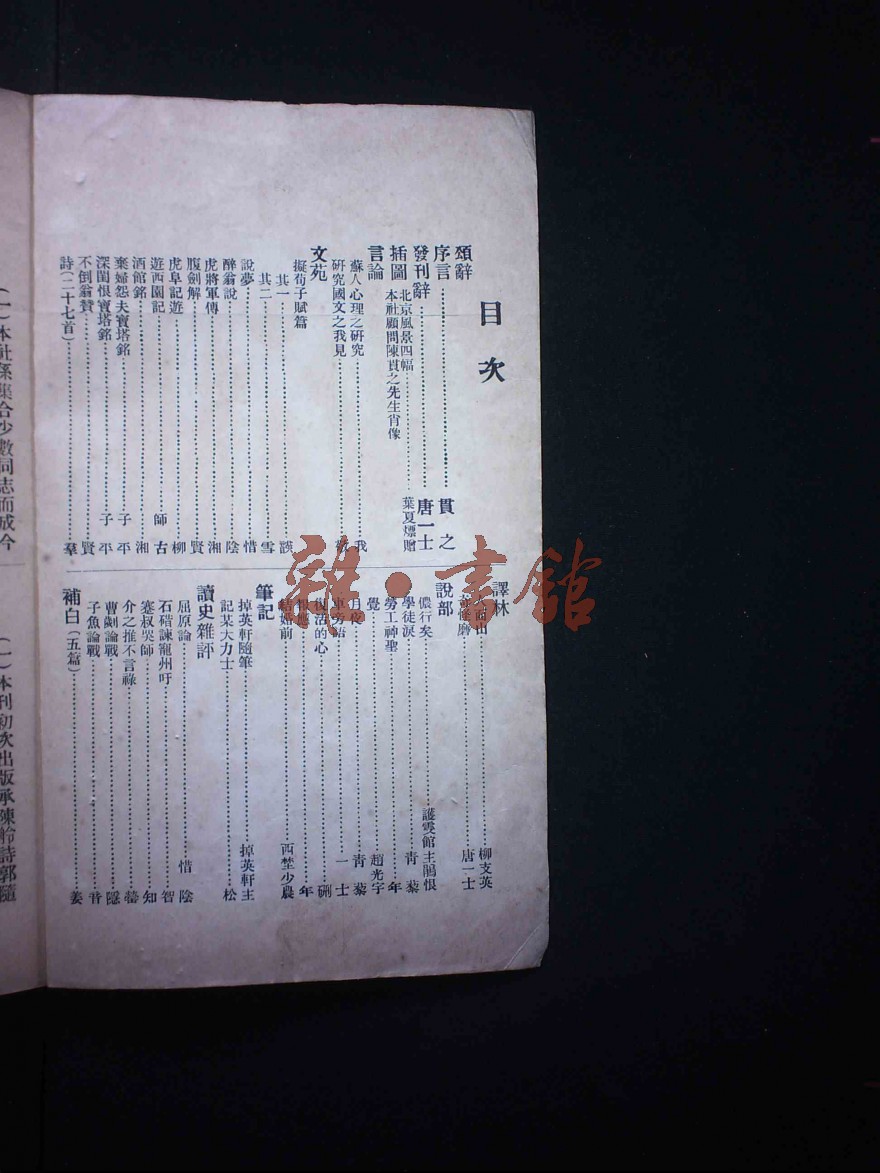 目次
頌辭
序言 貫之
發刊辭 唐一士
插圖 北京風景四幅 葉夏燝贈
本社顧問陳貫之先生肖像
言論
蘇人心理之研究 我
研究國文之我見 敬
文苑
擬荀子賦篇
其一 謨
其二 雪
說夢 惜
醉翁說 陰
虎將軍傳 湘
腹劍解 賢
虎阜記遊 柳
遊西園記 師古
酒館銘 湘
棄婦怨夫寶塔銘 子平
深閨恨寶塔銘 子平
不倒翁贊 賢
詩(二十七首) 羣
譯林
柳支英
唐一士
說部
儂行矣 護雲館主鵑恨
學徒淚 青藜
勞工神聖 年
覺 趙光宇
月夜 青藜
車旁語 一士
復活的心 硎
年
結婚前 西埜少農
筆記
掉英軒隨筆 掉英軒主
記某大力士 松
讀史雜評
屈原論 惜陰
石碏諫寵州吁 智
蹇叔哭師 知
介之推不言祿
曹劌論戰 隱
子魚論戰 音
補白(五篇) 姜
(一)本社係集合少數同志而成今
(一)本刊初次出版承陳軨詩郭隨
雜·書館